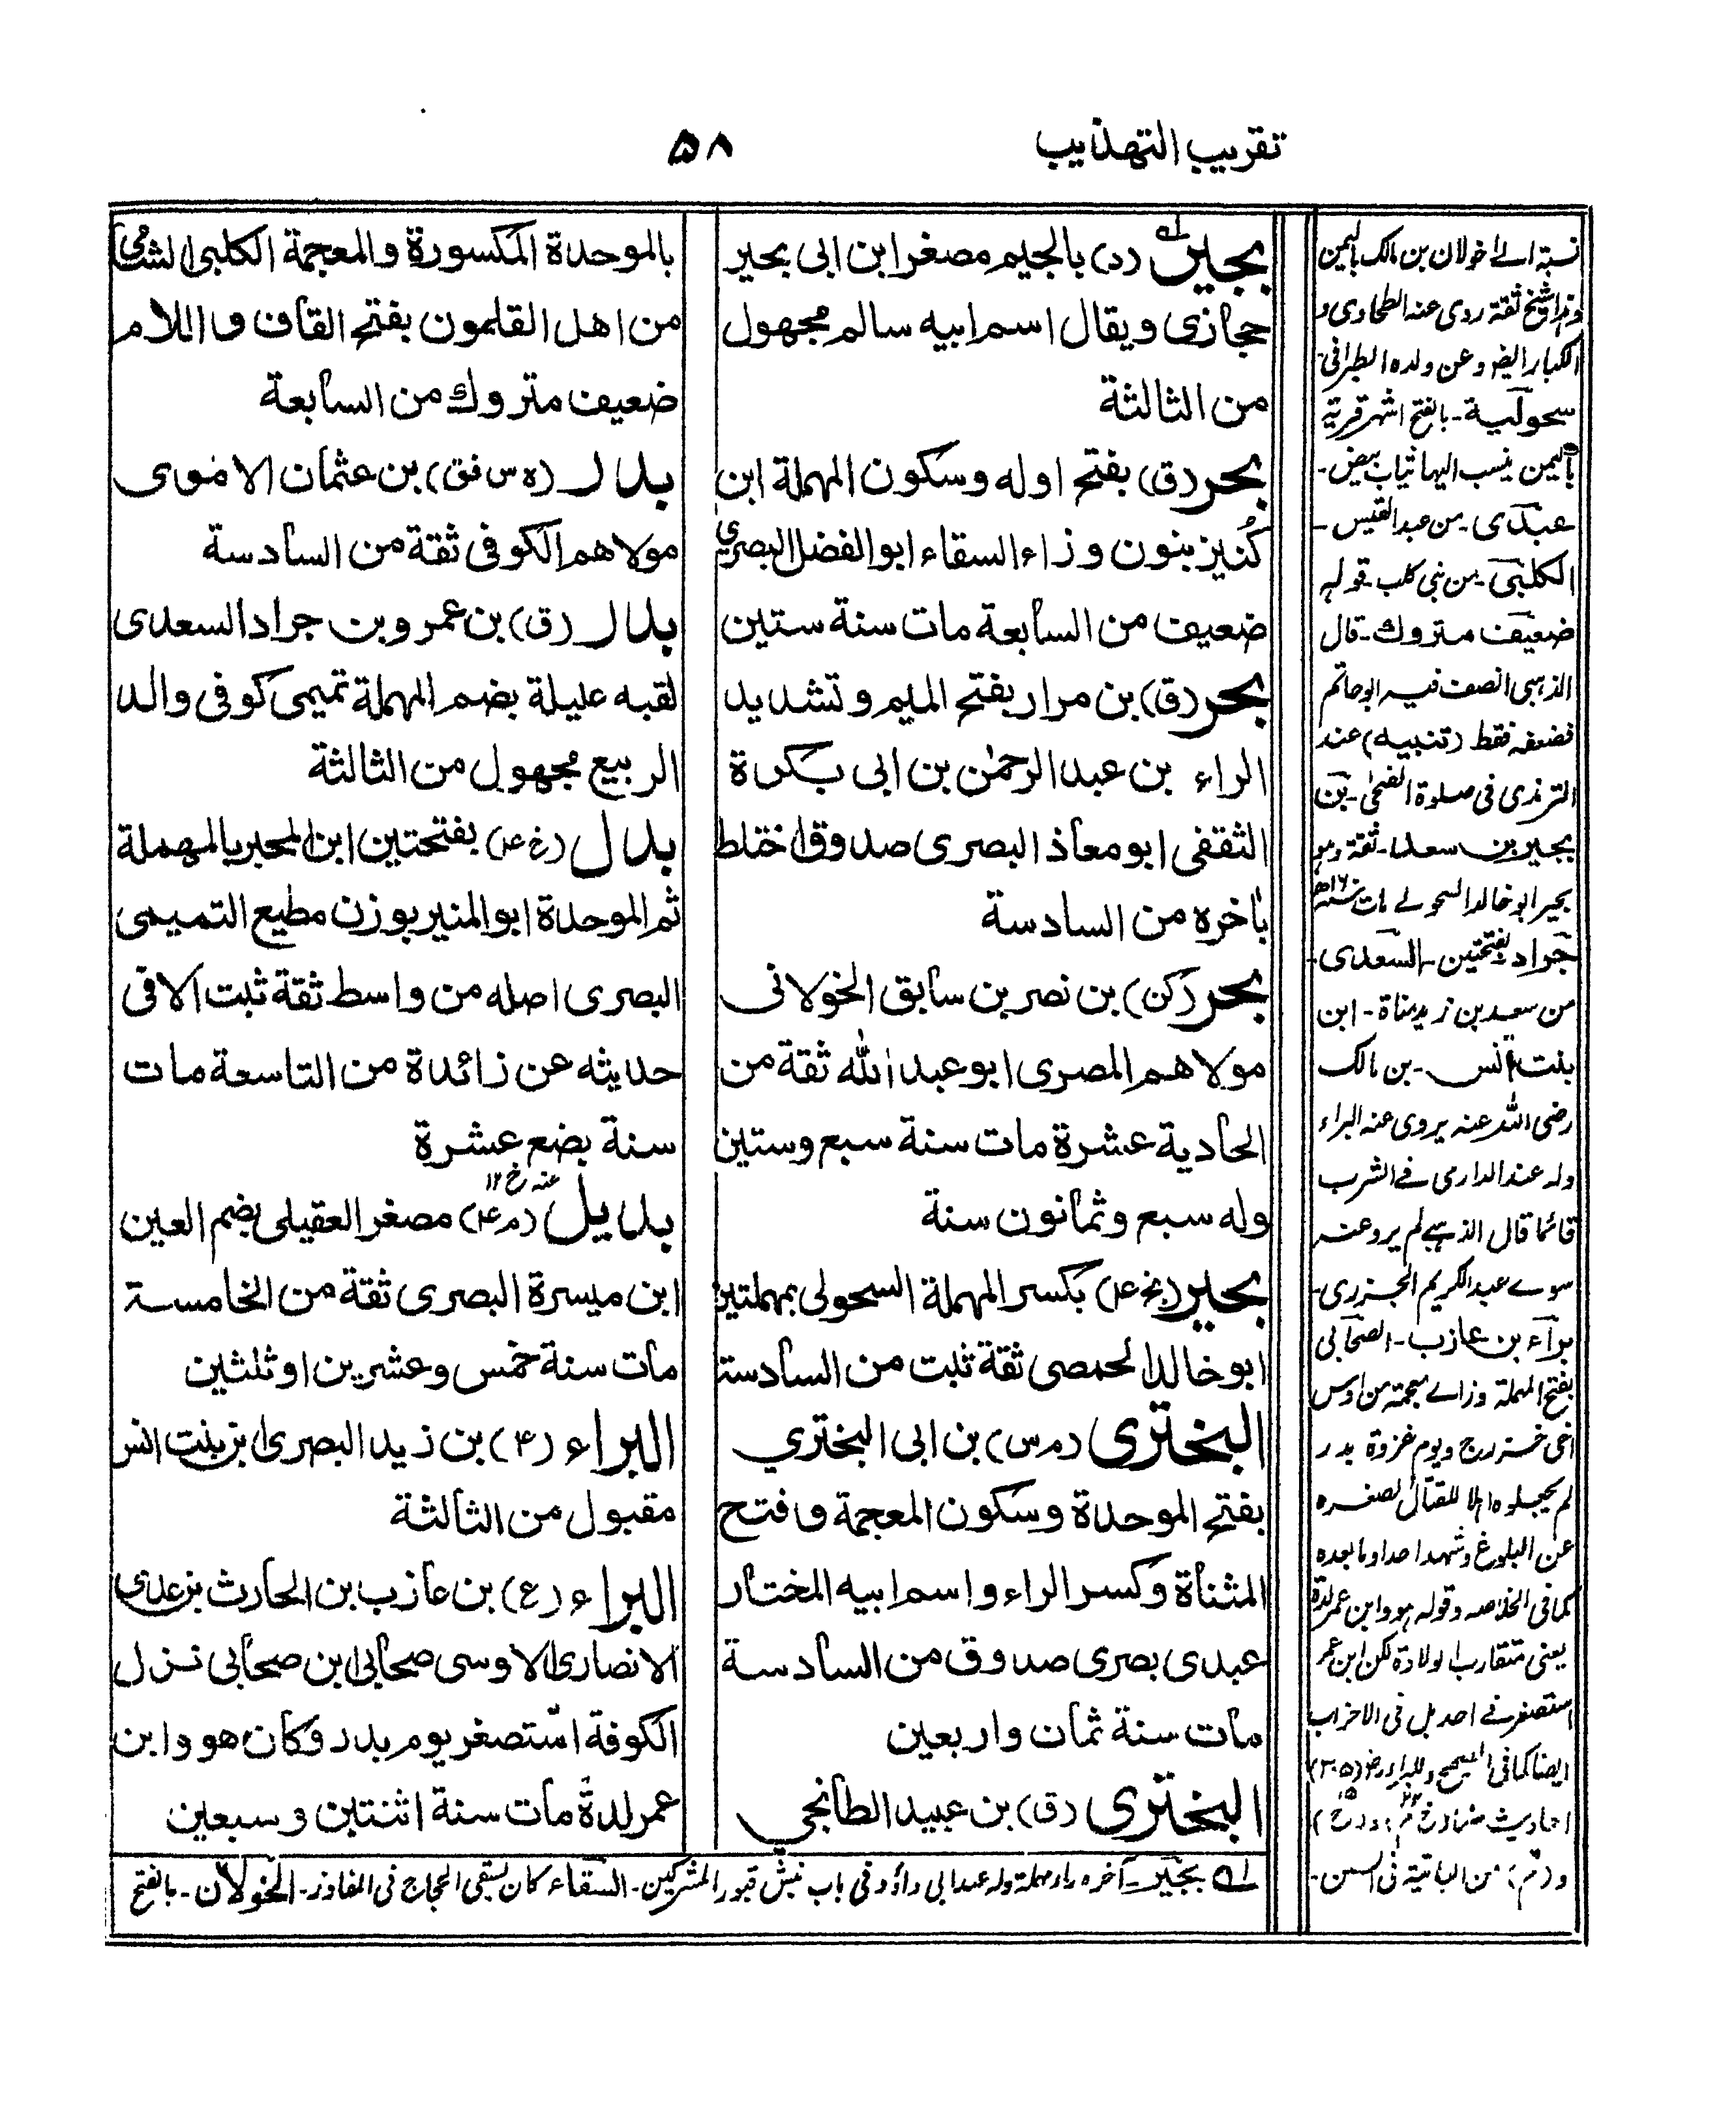 تقريب التهذيب
۵۸
بجير (د) بالجيم مصغرا بن ابى بجير
حجازى ويقال اسم ابيه سالم مجهول
من الثالثة
بحر (ق) بفتح اوله وسكون المهملة ابن
كُنيز بنون وزاء السقاء ابو الفضل البصري
ضعيف من السابعة مات سنة ستين
بحر (ق) بن مرار بفتح الميم وتشديد
الراء بن عبد الرحمٰن بن ابى بكرة
الثقفى ابو معاذ البصرى صدوق اختلط
باخره من السادسة
بحر (كن) بن نصر بن سابق الخولانى
مولاهم المصرى ابو عبد الله ثقة من
الحادية عشرة مات سنة سبع وستين
وله سبع وثمانون سنة
بحير (بخ ۴) بكسر المهملة السحولى بمهملتين
ابو خالد الحمصى ثقة ثبت من السادسة
البخترى (م س) بن ابى البختري
بفتح الموحدة وسكون المعجمة وفتح
المثناة وكسر الراء واسم ابيه المختار
عبدى بصرى صدوق من السادسة
مات سنة ثمان واربعين
البخترى (ق) بن عبيد الطابخي
بالموحدة المكسورة والمعجمة الكلبى الشامي
من اهل القلمون بفتح القاف واللام
ضعيف متروك من السابعة
بدل (ه س فق) بن عثمان الاموى
مولاهم الكوفى ثقة من السادسة
بدل (ق) بن عمرو بن جراد السعدى
لقبه عليلة بضم المهملة تميمى كوفى والد
الربيع مجهول من الثالثة
بدل (خ ۴) بفتحتين ابن المحبر بالمهملة
ثم الموحدة ابو المنير بوزن مطيع التميمى
البصرى اصله من واسط ثقة ثبت الا فى
حديثه عن زائدة من التاسعة مات
سنة بضع عشرة
عنه خ ۱۲
بديل (م ۴) مصغر العقيلى بضم العين
ابن ميسرة البصرى ثقة من الخامسة
مات سنة خمس وعشرين او ثلثين
البراء (۴) بن زيد البصرى ابن بنت انس
مقبول من الثالثة
البراء (ع) بن عازب بن الحارث بن عدى
الانصارى الاوسى صحابى ابن صحابى نزل
الكوفة استصغر يوم بدر وكان هو وابن
عمر لدة مات سنة اثنتين وسبعين
له بجير۔ آخره راء مهملة وله عند ابى داؤد فى باب نبش قبور المشركين۔ السقاء كان يسقى الحجاج فى المفاوز۔ الخولان۔ بالفتح
نسبة الى خولان بن مالك باليمن
شيخ ثقة روى عنه الطحاوى و
الكبار ايضا وعن ولده الطبرانى
سحولية۔ بالفتح اشهر قرية
باليمن ينسب اليها ثياب بيض۔
عبدى۔ من عبد القيس۔
الكلبى۔ من بنى كلب۔ قوله
ضعيف متروك۔ قال
الذهبى انصف فيه ابو حاتم
فضعفه فقط (تنبيه) عند
الترمذى فى صلوة الضحى۔ بن
بجير بن سعد۔ ثقة وهو
بحير ابو خالد السحولے مات
جراد بفتحتين۔ السعدى۔
من سعد بن زيد مناة۔ ابن
بنت انس۔ بن مالك
رضى الله عنه يروى عنه البراء
وله عند الدارمى فے الشرب
قائما قال الذهبے لم يرو عنه
سوے عبد الكريم الجزرى۔
براء بن عازب۔ الصحابى
بفتح المهملة وزاے معجمة من اوس
اخى خزرج ويوم غزوة بدر
لم يحملوه الا للقتال لصغره
عن البلوغ وشهد احدا وما بعده
كما فى الخلاصه وقوله هو وابن عمر لدة
يعنى متقارب الولادة لكن ابن عمر
استصغر فے احد بل فى الاحزاب
ايضا كما فى الصحيح وللبراء رض (۳۰۵)
احاديث
و (م) من الباقية فى السنن۔